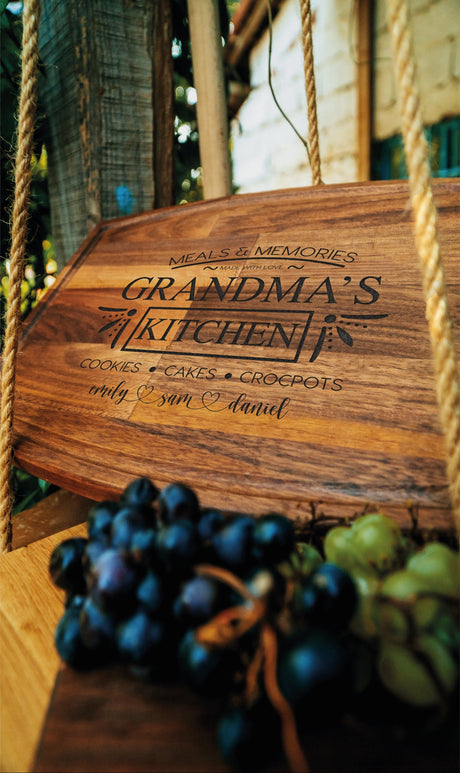 MEALS & MEMORIES
MADE WITH LOVE
GRANDMA'S
KITCHEN
COOKIES • CAKES • CROCPOTS
emily♡sam♡daniel